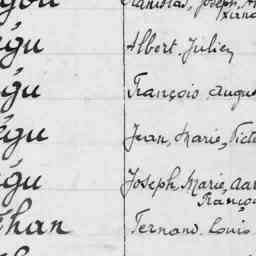 Stanislas, Joseph,
égu Albert Julien
égu François Augu
égu Jean, Marie, Victo
égu Joseph, Marie,
Franço
than Fernand Louis